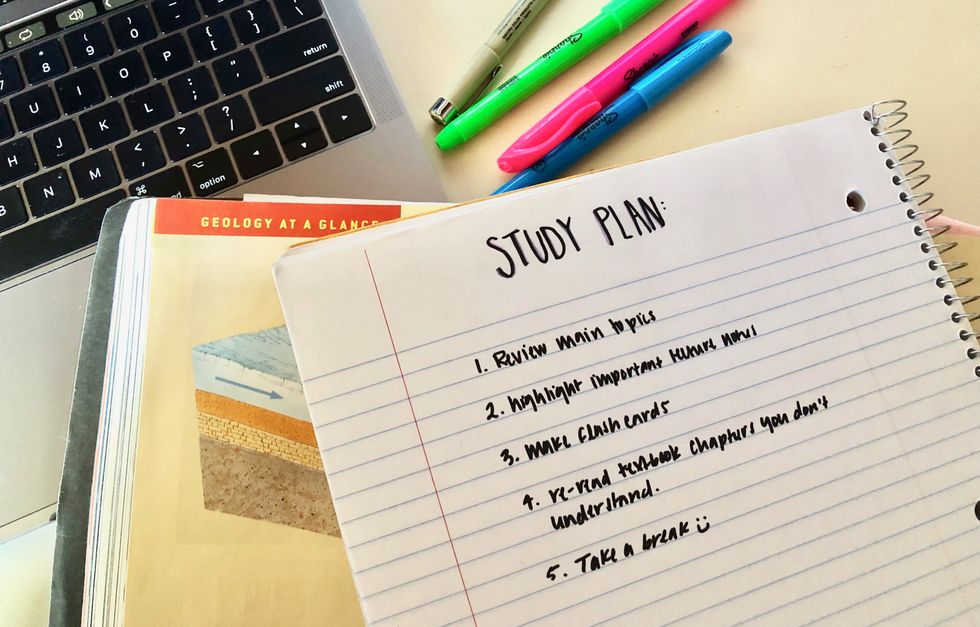 &
7
*
8
(
9
)
0
U
I
O
P
{
[
}
]
|
\
return
H
J
K
L
:
;
"
'
shift
B
N
M
<
,
>
.
?
/
⌘
⌥
option
Sharpie
Sharpie
Sharpie
GEOLOGY AT A GLANCE
STUDY PLAN:
1. Review main topics
2. highlight important lecture notes
3. make flash cards
4. re-read textbook chapters you don't
understand.
5. Take a break